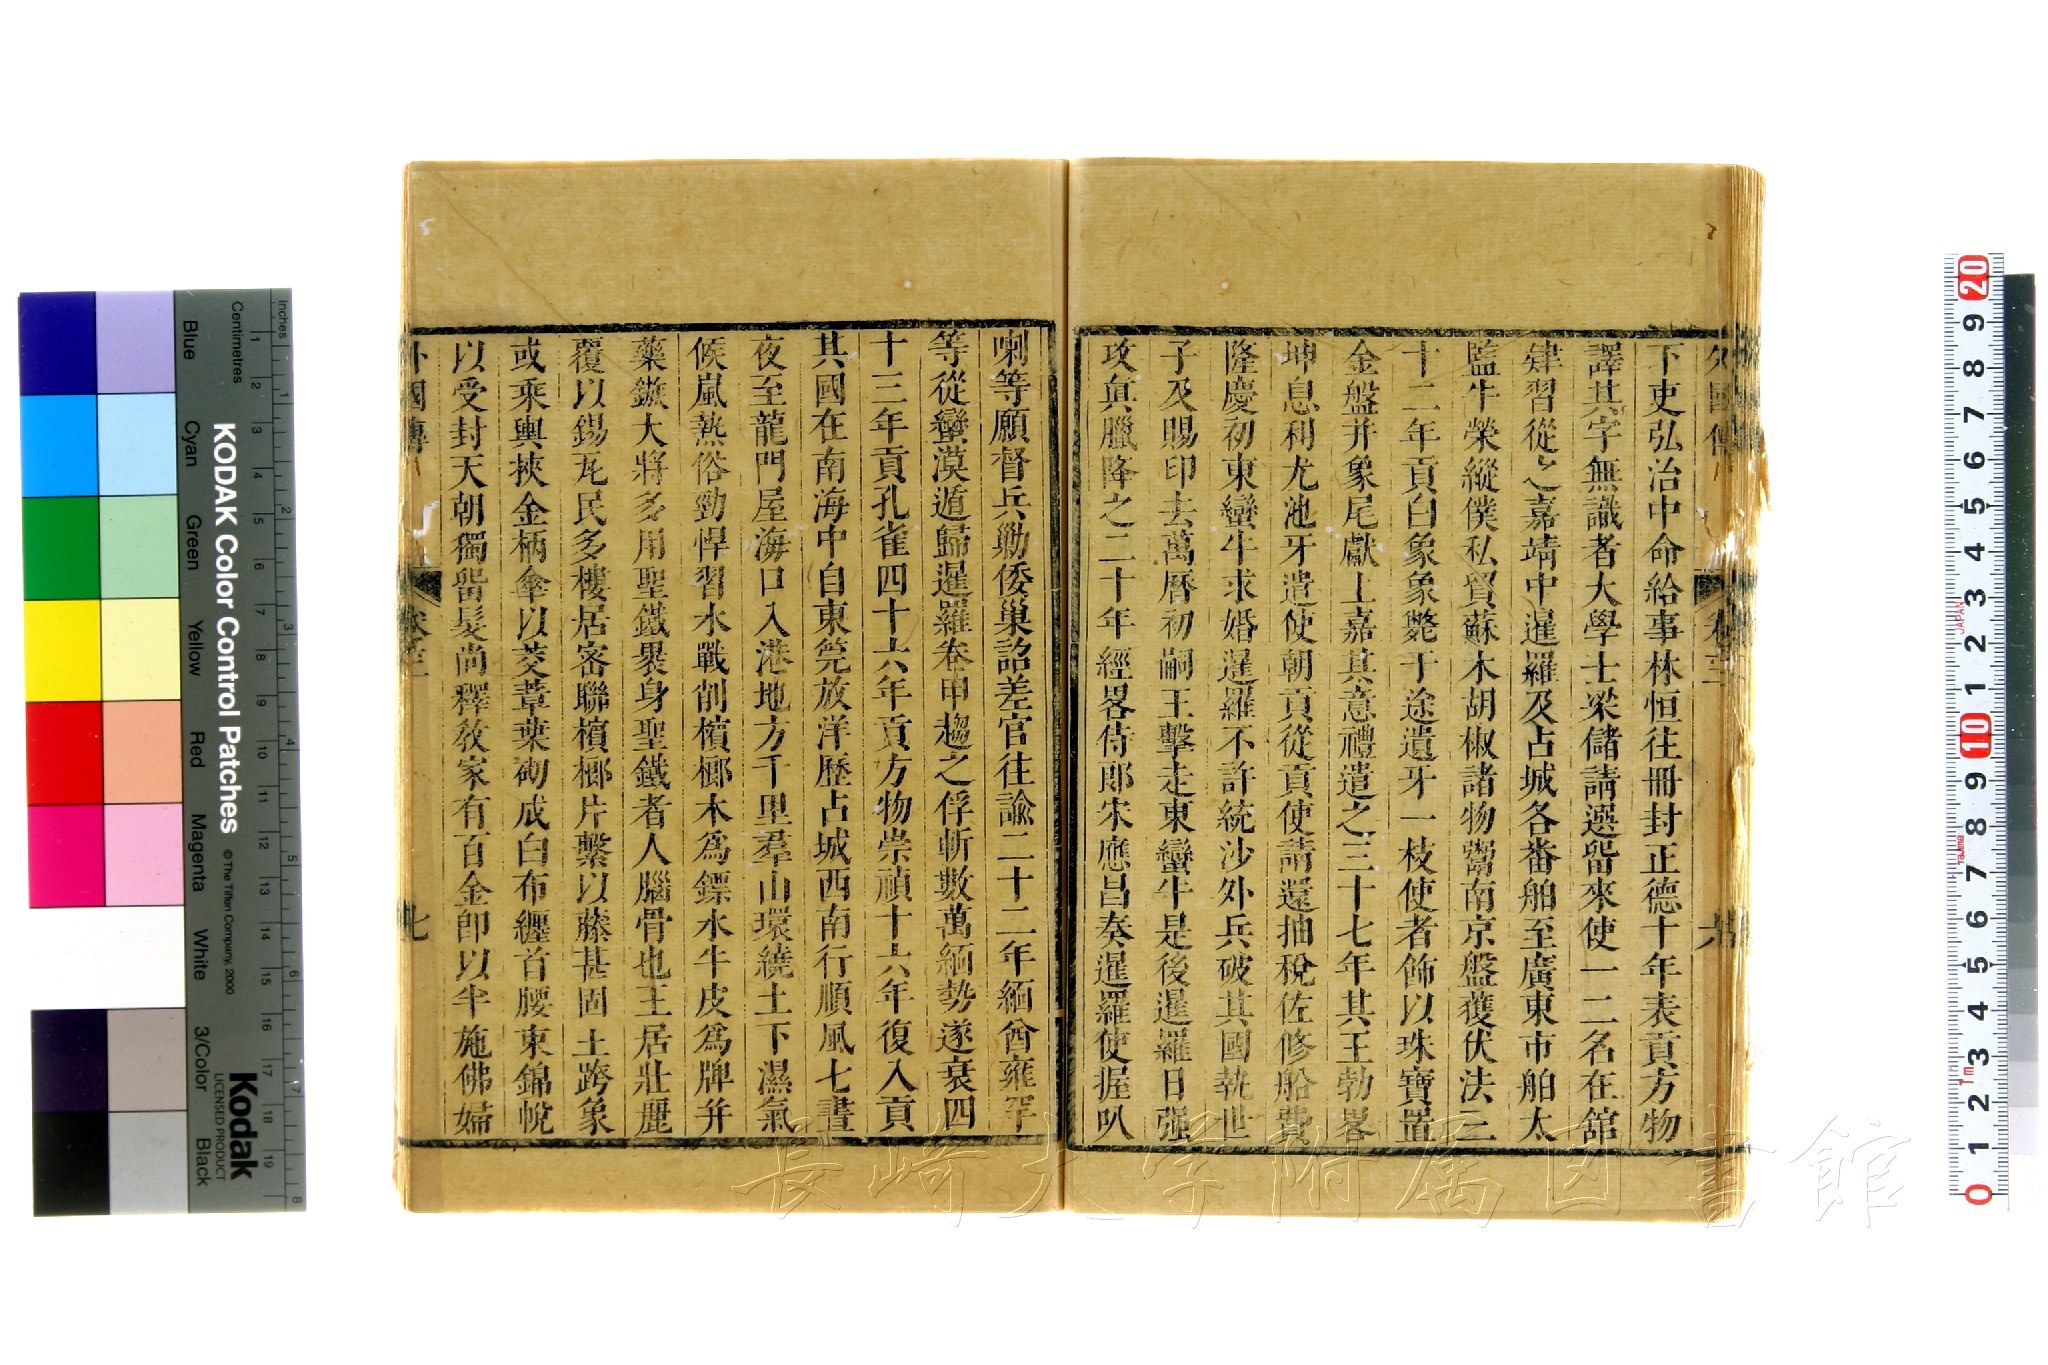 外國傳
卷三
六
下吏弘治中命給事林恒往冊封正德十年表貢方物
譯其字無識者大學士梁儲請選留來使一二名在舘
肄習從之嘉靖中暹羅及占城各番舶至廣東市舶太
監牛榮縱僕私買蘇木胡椒諸物鬻南京盤獲伏法三
十二年貢白象象斃于途遺牙一枝使者飾以珠寶置
金盤并象尾獻上嘉其意禮遣之三十七年其王勃畧
坤息利尤池牙遣使朝貢從貢使請還抽稅佐修船費
隆慶初東蠻牛求婚暹羅不許統沙外兵破其國執世
子及賜印去萬曆初嗣王擊走東蠻牛是後暹羅日强
攻真臘降之二十年經畧侍郎宋應昌奏暹羅使握叭
喇等願督兵勦倭巢詔差官往諭二十二年緬酋雍罕
等從蠻漠遁歸暹羅卷甲趨之俘斬數萬緬勢遂衰四
十三年貢孔雀四十六年貢方物崇禎十六年復入貢
其國在南海中自東筦放洋歷占城西南行順風七晝
夜至龍門屋海口入港地方千里羣山環繞土下濕氣
候嵐熱俗勁悍習水戰削檳榔木爲鏢水牛皮爲牌并
藥鏃大將多用聖鐵畏身聖鐵者人腦骨也王居壯麗
覆以錫瓦民多樓居密聯檳榔片繫以藤甚固土跨象
或乘輿挾金柄傘以茭葦葉砌成白布纏首腰束錦帨
以受封天朝獨留髮尚釋敎家有百金卽以半施佛婦
外國傳
卷三
七
KODAK Color Control Patches
Blue
Cyan
Green
Yellow
Red
Magenta
White
3/Color
Black
inches
Centimetres
© The Tiffen Company, 2000
Kodak
LICENSED PRODUCT
長崎大学附属図書館
JAPAN
Tajima
1m